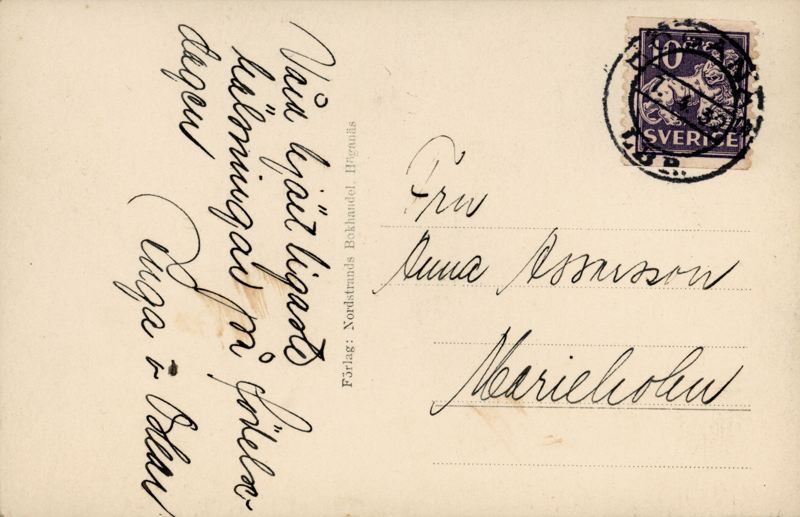 Våra hjärtligaste
hälsningar på födelse-
dagen
Inga o Oskar
Förlag: Nordstrands Bokhandel, Höganäs
10 ÖRE
SVERIGE
LBR
Fru
Anna Assarsson
Marieholm